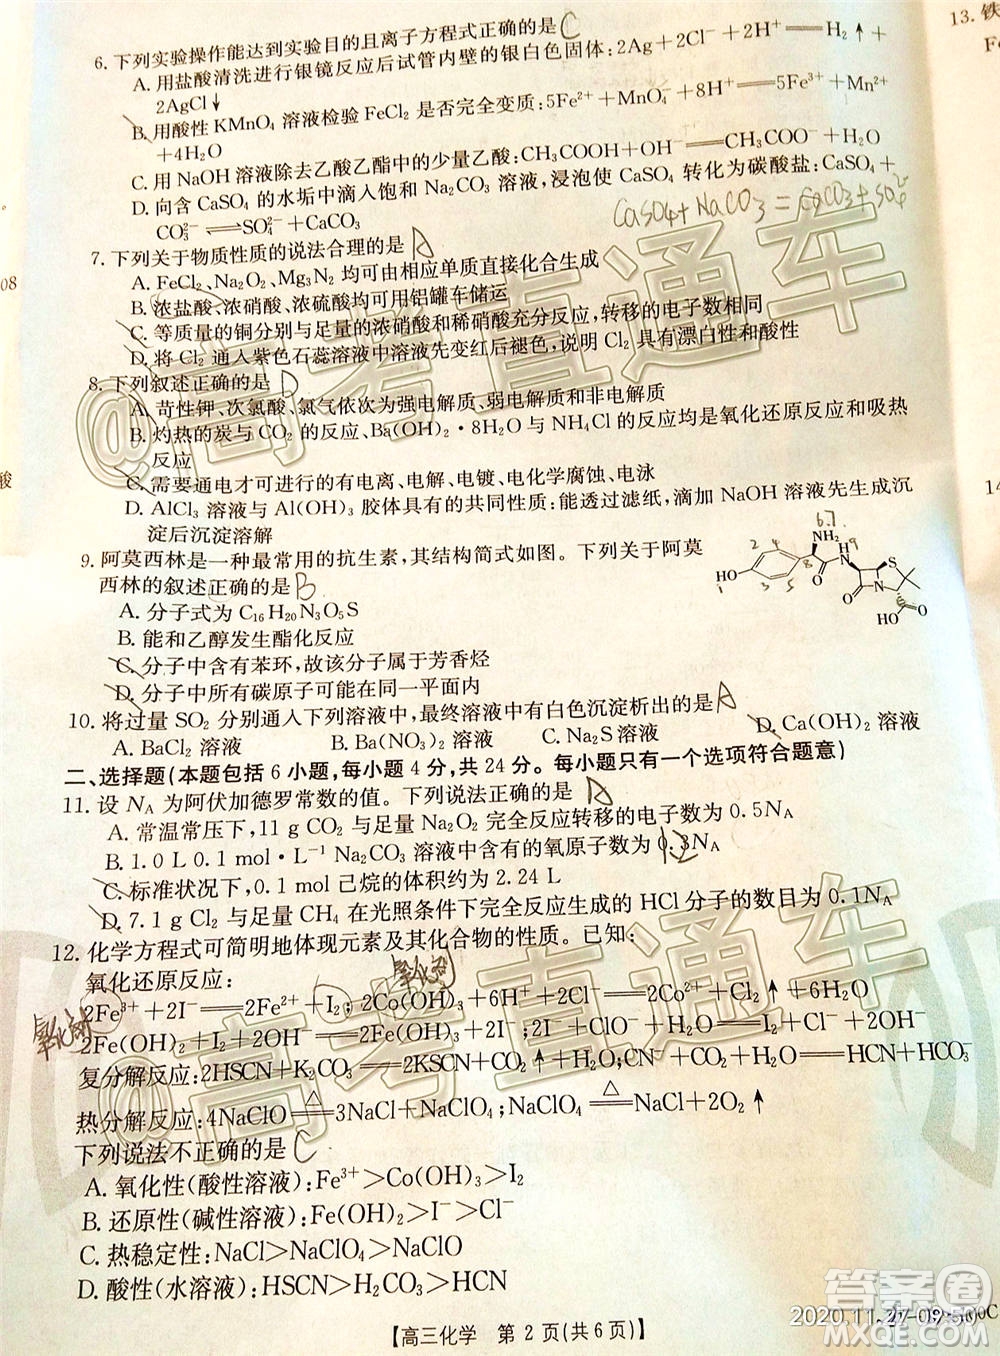 6. 下列实验操作能达到实验目的且离子方程式正确的是 C
A. 用盐酸清洗进行银镜反应后试管内壁的银白色固体:2Ag+2Cl⁻+2H⁺══H₂↑+
2AgCl↓
B. 用酸性 KMnO₄ 溶液检验 FeCl₂ 是否完全变质:5Fe²⁺+MnO₄⁻+8H⁺══5Fe³⁺+Mn²⁺
+4H₂O
C. 用 NaOH 溶液除去乙酸乙酯中的少量乙酸:CH₃COOH+OH⁻══CH₃COO⁻+H₂O
D. 向含 CaSO₄ 的水垢中滴入饱和 Na₂CO₃ 溶液,浸泡使 CaSO₄ 转化为碳酸盐:CaSO₄+
CO₃²⁻⇌SO₄²⁻+CaCO₃
7. 下列关于物质性质的说法合理的是 A
A. FeCl₂、Na₂O₂、Mg₃N₂ 均可由相应单质直接化合生成
B. 浓盐酸、浓硝酸、浓硫酸均可用铝罐车储运
C. 等质量的铜分别与足量的浓硝酸和稀硝酸充分反应,转移的电子数相同
D. 将 Cl₂ 通入紫色石蕊溶液中溶液先变红后褪色,说明 Cl₂ 具有漂白性和酸性
8. 下列叙述正确的是 D
A. 苛性钾、次氯酸、氯气依次为强电解质、弱电解质和非电解质
B. 灼热的炭与 CO₂ 的反应、Ba(OH)₂·8H₂O 与 NH₄Cl 的反应均是氧化还原反应和吸热
反应
C. 需要通电才可进行的有电离、电解、电镀、电化学腐蚀、电泳
D. AlCl₃ 溶液与 Al(OH)₃ 胶体具有的共同性质:能透过滤纸,滴加 NaOH 溶液先生成沉
淀后沉淀溶解
9. 阿莫西林是一种最常用的抗生素,其结构简式如图。下列关于阿莫
西林的叙述正确的是 B
A. 分子式为 C₁₆H₂₀N₃O₅S
B. 能和乙醇发生酯化反应
C. 分子中含有苯环,故该分子属于芳香烃
D. 分子中所有碳原子可能在同一平面内
10. 将过量 SO₂ 分别通入下列溶液中,最终溶液中有白色沉淀析出的是 A
A. BaCl₂ 溶液 B. Ba(NO₃)₂ 溶液 C. Na₂S 溶液 D. Ca(OH)₂ 溶液
二、选择题(本题包括 6 小题,每小题 4 分,共 24 分。每小题只有一个选项符合题意)
11. 设 Nᴀ 为阿伏加德罗常数的值。下列说法正确的是 A
A. 常温常压下,11 g CO₂ 与足量 Na₂O₂ 完全反应转移的电子数为 0.5Nᴀ
B. 1.0 L 0.1 mol·L⁻¹ Na₂CO₃ 溶液中含有的氧原子数为 0.3Nᴀ
C. 标准状况下,0.1 mol 己烷的体积约为 2.24 L
D. 7.1 g Cl₂ 与足量 CH₄ 在光照条件下完全反应生成的 HCl 分子的数目为 0.1Nᴀ
12. 化学方程式可简明地体现元素及其化合物的性质。已知:
氧化还原反应:
2Fe³⁺+2I⁻══2Fe²⁺+I₂;2Co(OH)₃+6H⁺+2Cl⁻══2Co²⁺+Cl₂↑+6H₂O
2Fe(OH)₂+I₂+2OH⁻══2Fe(OH)₃+2I⁻;2I⁻+ClO⁻+H₂O══I₂+Cl⁻+2OH⁻
复分解反应:2HSCN+K₂CO₃══2KSCN+CO₂↑+H₂O;CN⁻+CO₂+H₂O══HCN+HCO₃⁻
热分解反应:4NaClO══△3NaCl+NaClO₄;NaClO₄══△NaCl+2O₂↑
下列说法不正确的是 C
A. 氧化性(酸性溶液):Fe³⁺>Co(OH)₃>I₂
B. 还原性(碱性溶液):Fe(OH)₂>I⁻>Cl⁻
C. 热稳定性:NaCl>NaClO₄>NaClO
D. 酸性(水溶液):HSCN>H₂CO₃>HCN
【高三化学 第 2 页(共 6 页)】
CaSO₄+NaCO₃=CaCO₃+SO₄²⁻
6.7.
NH₂
HO
O
H
N
S
O
N
HO
O
氧化剂
氧化剂
13. 铁
08
酸
@高考直通车
@高考直通车
答案圈
MXQE.COM
2020.11.27